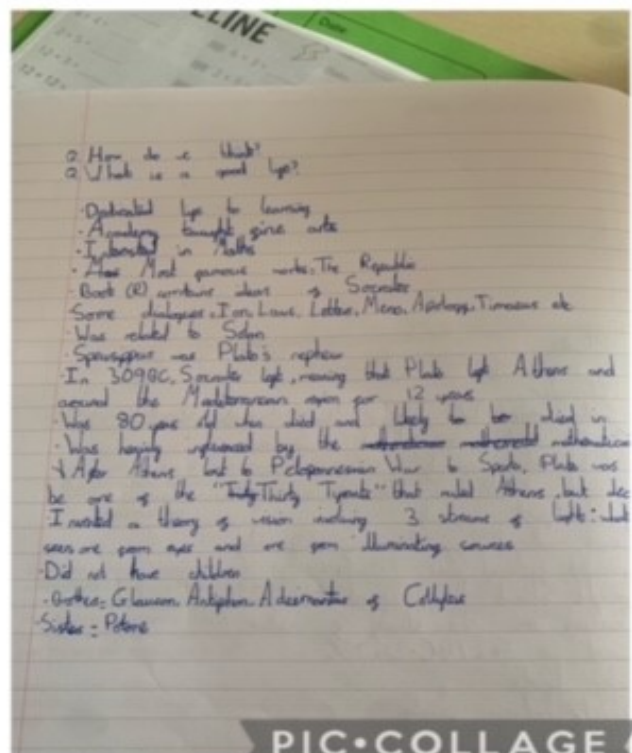 ELINE
Date
12 ÷ 3 =
12 ÷ 12 =
Q How do we think?
Q What is a good lye?
· Dedicated lye to learning
· Academy taught give arts
· Interested in Maths
· Most gamous works: The Republic
· Book (R) contains ideas of Socrates
Some dialogues, Ion, Laws, Letters, Meno, Apology, Timaeus etc
· Was related to Solon
· Speusippus was Plato's nephew
In 309BC, Socrates left, meaning that Plato left Athens and
around the Mediterranean region for 12 years
· Was 80 years old when died and likely to be died in
· Was heavily influenced by the mathematician
After Athens lost to Peloponnesian War to Sparta, Plato was
be one of the "Thirty Tyrants" that ruled Athens, but dec
Invented a theory of vision involving 3 streams of light: what
seen one from eyes and one from illuminating sources
· Did not have children
· Brothers = Glaucon, Antiphon, Adeimantus of Collytus
Sister = Potone
PIC•COLLAGE